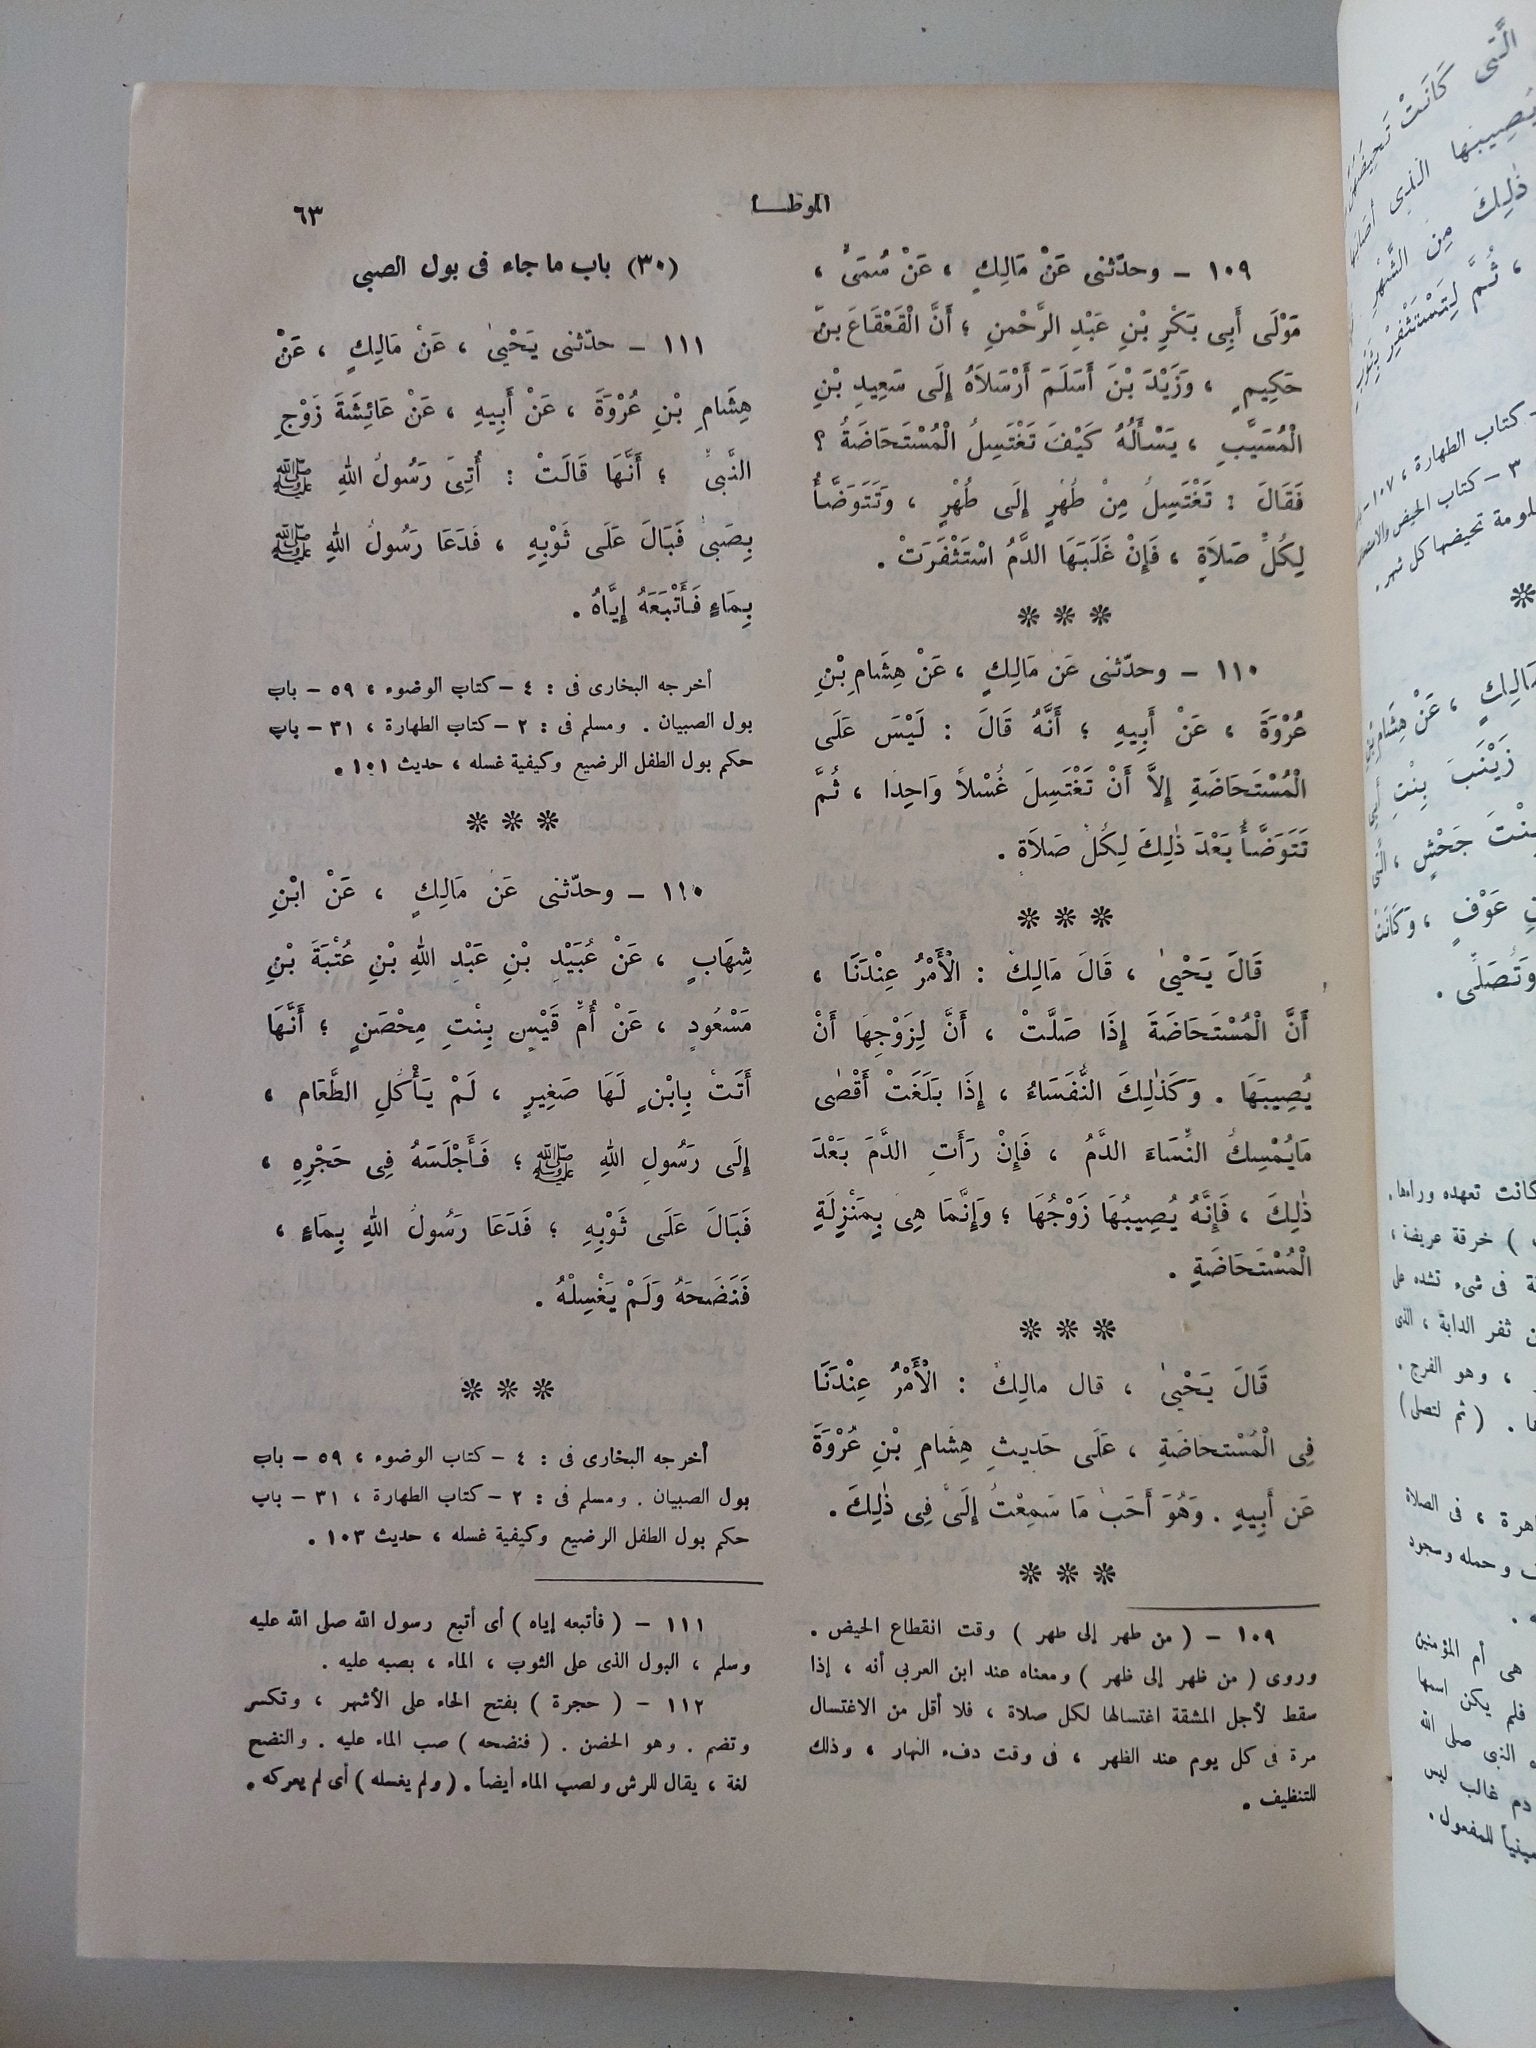 الموطأ
٦٣
١٠٩ - وحدّثنى عَنْ مَالِكٍ ، عَنْ سُمَىٍّ ،
مَوْلَى أَبِى بَكْرِ بْنِ عَبْدِ الرَّحْمنِ ؛ أَنَّ الْقَعْقَاعَ بنَ
حَكِيمٍ ، وَزَيْدَ بْنَ أَسْلَمَ أَرْسَلَاهُ إِلَى سَعِيدِ بْنِ
الْمُسَيَّبِ ، يَسْأَلُهُ كَيْفَ تَغْتَسِلُ الْمُسْتَحَاضَةُ ؟
فَقَالَ : تَغْتَسِلُ مِنْ طُهْرٍ إِلَى طُهْرٍ ، وَتَتَوَضَّأُ
لِكُلِّ صَلاَةٍ ، فَإِنْ غَلَبَهَا الدَّمُ اسْتَثْفَرَتْ .
١١٠ - وحدّثنى عَنْ مَالِكٍ ، عَنْ هِشَامِ بْنِ
عُرْوَةَ ، عَنْ أَبِيهِ ؛ أَنَّهُ قَالَ : لَيْسَ عَلَى
الْمُسْتَحَاضَةِ إِلاَّ أَنْ تَغْتَسِلَ غُسْلاً وَاحِدًا ، ثُمَّ
تَتَوَضَّأُ بَعْدَ ذٰلِكَ لِكُلِّ صَلاَةٍ .
قَالَ يَحْيىٰ ، قَالَ مَالِكٌ : الْأَمْرُ عِنْدَنَا ،
أَنَّ الْمُسْتَحَاضَةَ إِذَا صَلَّتْ ، أَنَّ لِزَوْجِهَا أَنْ
يُصِيبَهَا . وَكَذٰلِكَ النُّفَسَاءُ ، إِذَا بَلَغَتْ أَقْصٰى
مَايُمْسِكُ النِّسَاءَ الدَّمُ ، فَإِنْ رَأَتِ الدَّمَ بَعْدَ
ذٰلِكَ ، فَإِنَّهُ يُصِيبُهَا زَوْجُهَا ؛ وَإِنَّمَا هِىَ بِمَنْزِلَةِ
الْمُسْتَحَاضَةِ .
قَالَ يَحْيىٰ ، قال مالِكٌ : الْأَمْرُ عِنْدَنَا
فِى الْمُسْتحَاضَةِ ، عَلَى حَدِيثِ هِشَامِ بْنِ عُرْوَةَ
عَنْ أَبِيهِ . وَهُوَ أَحَبُّ مَا سَمِعْتُ إِلَىَّ فِى ذٰلِكَ .
١٠٩ - ( من طهر إلى طهر ) وقت انقطاع الحيض .
وروى ( من ظهر إلى ظهر ) ومعناه عند ابن العربى أنه ، إذا
سقط لأجل المشقة اغتسالها لكل صلاة ، فلا أقل من الاغتسال
مرة فى كل يوم عند الظهر ، فى وقت دفء النهار ، وذلك
للتنظيف .
(٣٠) باب ما جاء فى بول الصبى
١١١ - حدّثنى يَحْيىٰ ، عَنْ مَالِكٍ ، عَنْ
هِشَامِ بْنِ عُرْوَةَ ، عَنْ أَبِيهِ ، عَنْ عَائِشَةَ زَوْجِ
النَّبِىِّ ؛ أَنَّهَا قَالَتْ : أُتِىَ رَسُولُ اللهِ ﷺ
بِصَبِىٍّ فَبَالَ عَلَى ثَوْبِهِ ، فَدَعَا رَسُولُ اللهِ ﷺ
بِمَاءٍ فَأَتْبَعَهُ إِيَّاهُ .
أخرجه البخارى فى : ٤ - كتاب الوضوء ، ٥٩ - باب
بول الصبيان . ومسلم فى : ٢ - كتاب الطهارة ، ٣١ - باب
حكم بول الطفل الرضيع وكيفية غسله ، حديث ١٠١ .
١١٠ - وحدّثنى عَنْ مَالِكٍ ، عَنْ ابْنِ
شِهَابٍ ، عَنْ عُبَيْدِ بْنِ عَبْدِ اللهِ بْنِ عُتْبَةَ بْنِ
مَسْعُودٍ ، عَنْ أُمِّ قَيْسٍ بِنْتِ مِحْصَنٍ ؛ أَنَّهَا
أَتَتْ بِابْنٍ لَهَا صَغِيرٍ ، لَمْ يَأْكُلِ الطَّعَامَ ،
إِلَى رَسُولِ اللهِ ﷺ ؛ فَأَجْلَسَهُ فِى حَجْرِهِ ،
فَبَالَ عَلَى ثَوْبِهِ ؛ فَدَعَا رَسُولُ اللهِ بِمَاءٍ ،
فَنَضَحَهُ وَلَمْ يَغْسِلْهُ .
أخرجه البخارى فى : ٤ - كتاب الوضوء ، ٥٩ - باب
بول الصبيان . ومسلم فى : ٢ - كتاب الطهارة ، ٣١ - باب
حكم بول الطفل الرضيع وكيفية غسله ، حديث ١٠٣ .
١١١ - ( فأتبعه إياه ) أى أتبع رسول الله صلى الله عليه
وسلم ، البول الذى على الثوب ، الماء ، بصبه عليه .
١١٢ - ( حجرة ) بفتح الحاء على الأشهر ، وتكسر
وتضم . وهو الحضن . ( فنضحه ) صب الماء عليه . والنضح
لغة ، يقال للرش ولصب الماء أيضاً . ( ولم يغسله ) أى لم يعركه .
الَّتِى كَانَتْ تَحِيضُهُنَّ
يُصِيبَهَا الَّذِى أَصَابَهَا
ذٰلِكَ مِنَ الشَّهْرِ
، ثُمَّ لِتَسْتَثْفِرْ بِثَوْبٍ
- كتاب الطهارة ، ١٠٧ -
٣ - كتاب الحيض والاستحاضة
تحيضها كل شهر .
مَالِكٍ ، عَنْ هِشَامِ بْنِ
زَيْنَبَ بِنْتِ أَبِى
بِنْتَ جَحْشٍ ، الَّتِى
عَوْفٍ ، وَكَانَتْ
وَتُصَلِّى .
كانت تعهده وراءها .
) خرقة عريضة ،
فى شىء تشده على
ثفر الدابة ، الذى
، وهو الفرج .
. ( ثم لتصلى )
، فى الصلاة
وحمله وسجود
هى أم المؤمنين
فلم يكن اسمها
النبى صلى الله
دم غالب ليس
للمفعول .